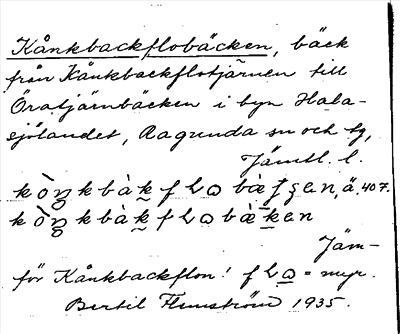 Kånkbackflobäcken, bäck
från Kånkbackflotjärnen till
Öratjärnbäcken i byn Hala-
sjölandet, Ragunda sn och tg,
Jämtl. l.
k ò ŋ k b à k f l ɷ bæ̀ ʃ ʂ ɛ n, ä. 407.
k ò ŋ k b à k f l ɷ b æ̀ k e n
Jäm-
för Kånkbackflon! f l ɷ = myr.
Bertil Flemström 1935.